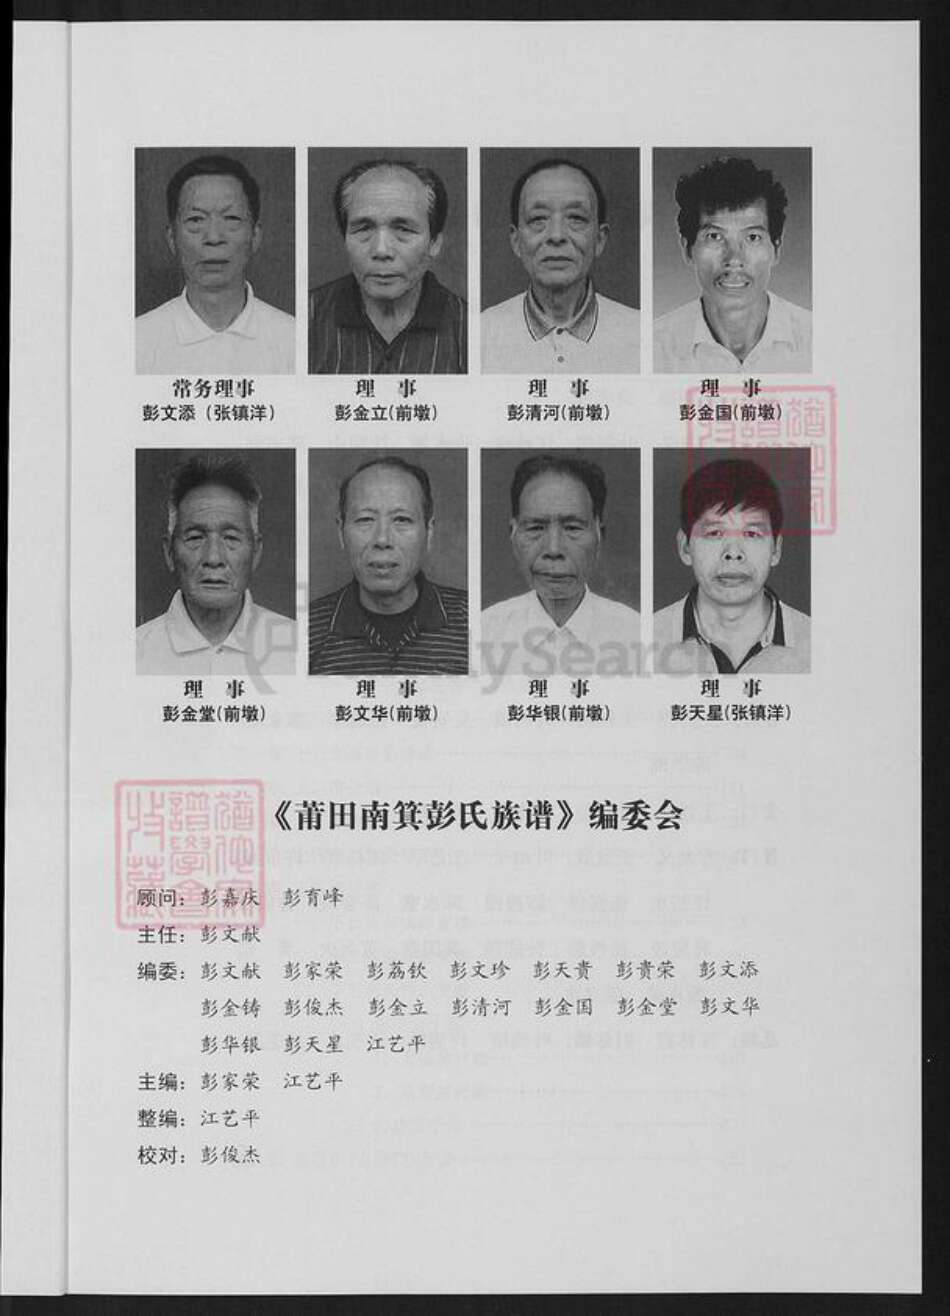 常务理事 理 事 理 事 理 事
彭文添（张镇洋） 彭金立(前墩) 彭清河(前墩) 彭金国(前墩)
理 事 理 事 理 事 理 事
彭金堂(前墩) 彭文华(前墩) 彭华银(前墩) 彭天星(张镇洋)
《莆田南箕彭氏族谱》编委会
顾问：彭嘉庆 彭育峰
主任：彭文献
编委：彭文献 彭家荣 彭荔钦 彭文珍 彭天贵 彭贵荣 彭文添
彭金铸 彭俊杰 彭金立 彭清河 彭金国 彭金堂 彭文华
彭华银 彭天星 江艺平
主编：彭家荣 江艺平
整编：江艺平
校对：彭俊杰